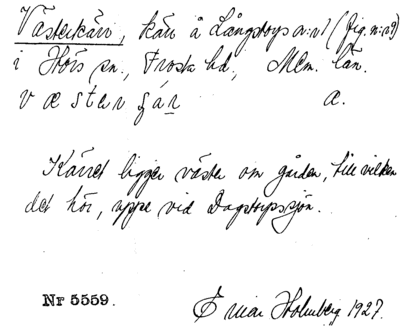 Västerkärr, kärr å Långstorps n:r 1 (fig. n:r 9)
i Hörs sn., Frosta hd., Mlm. län.
væstərʃár a.
Kärret ligger väster om gården, till vilken
det hör, uppe vid Dagstorpssjön.
Nr 5559.
Einar Holmberg 1927.